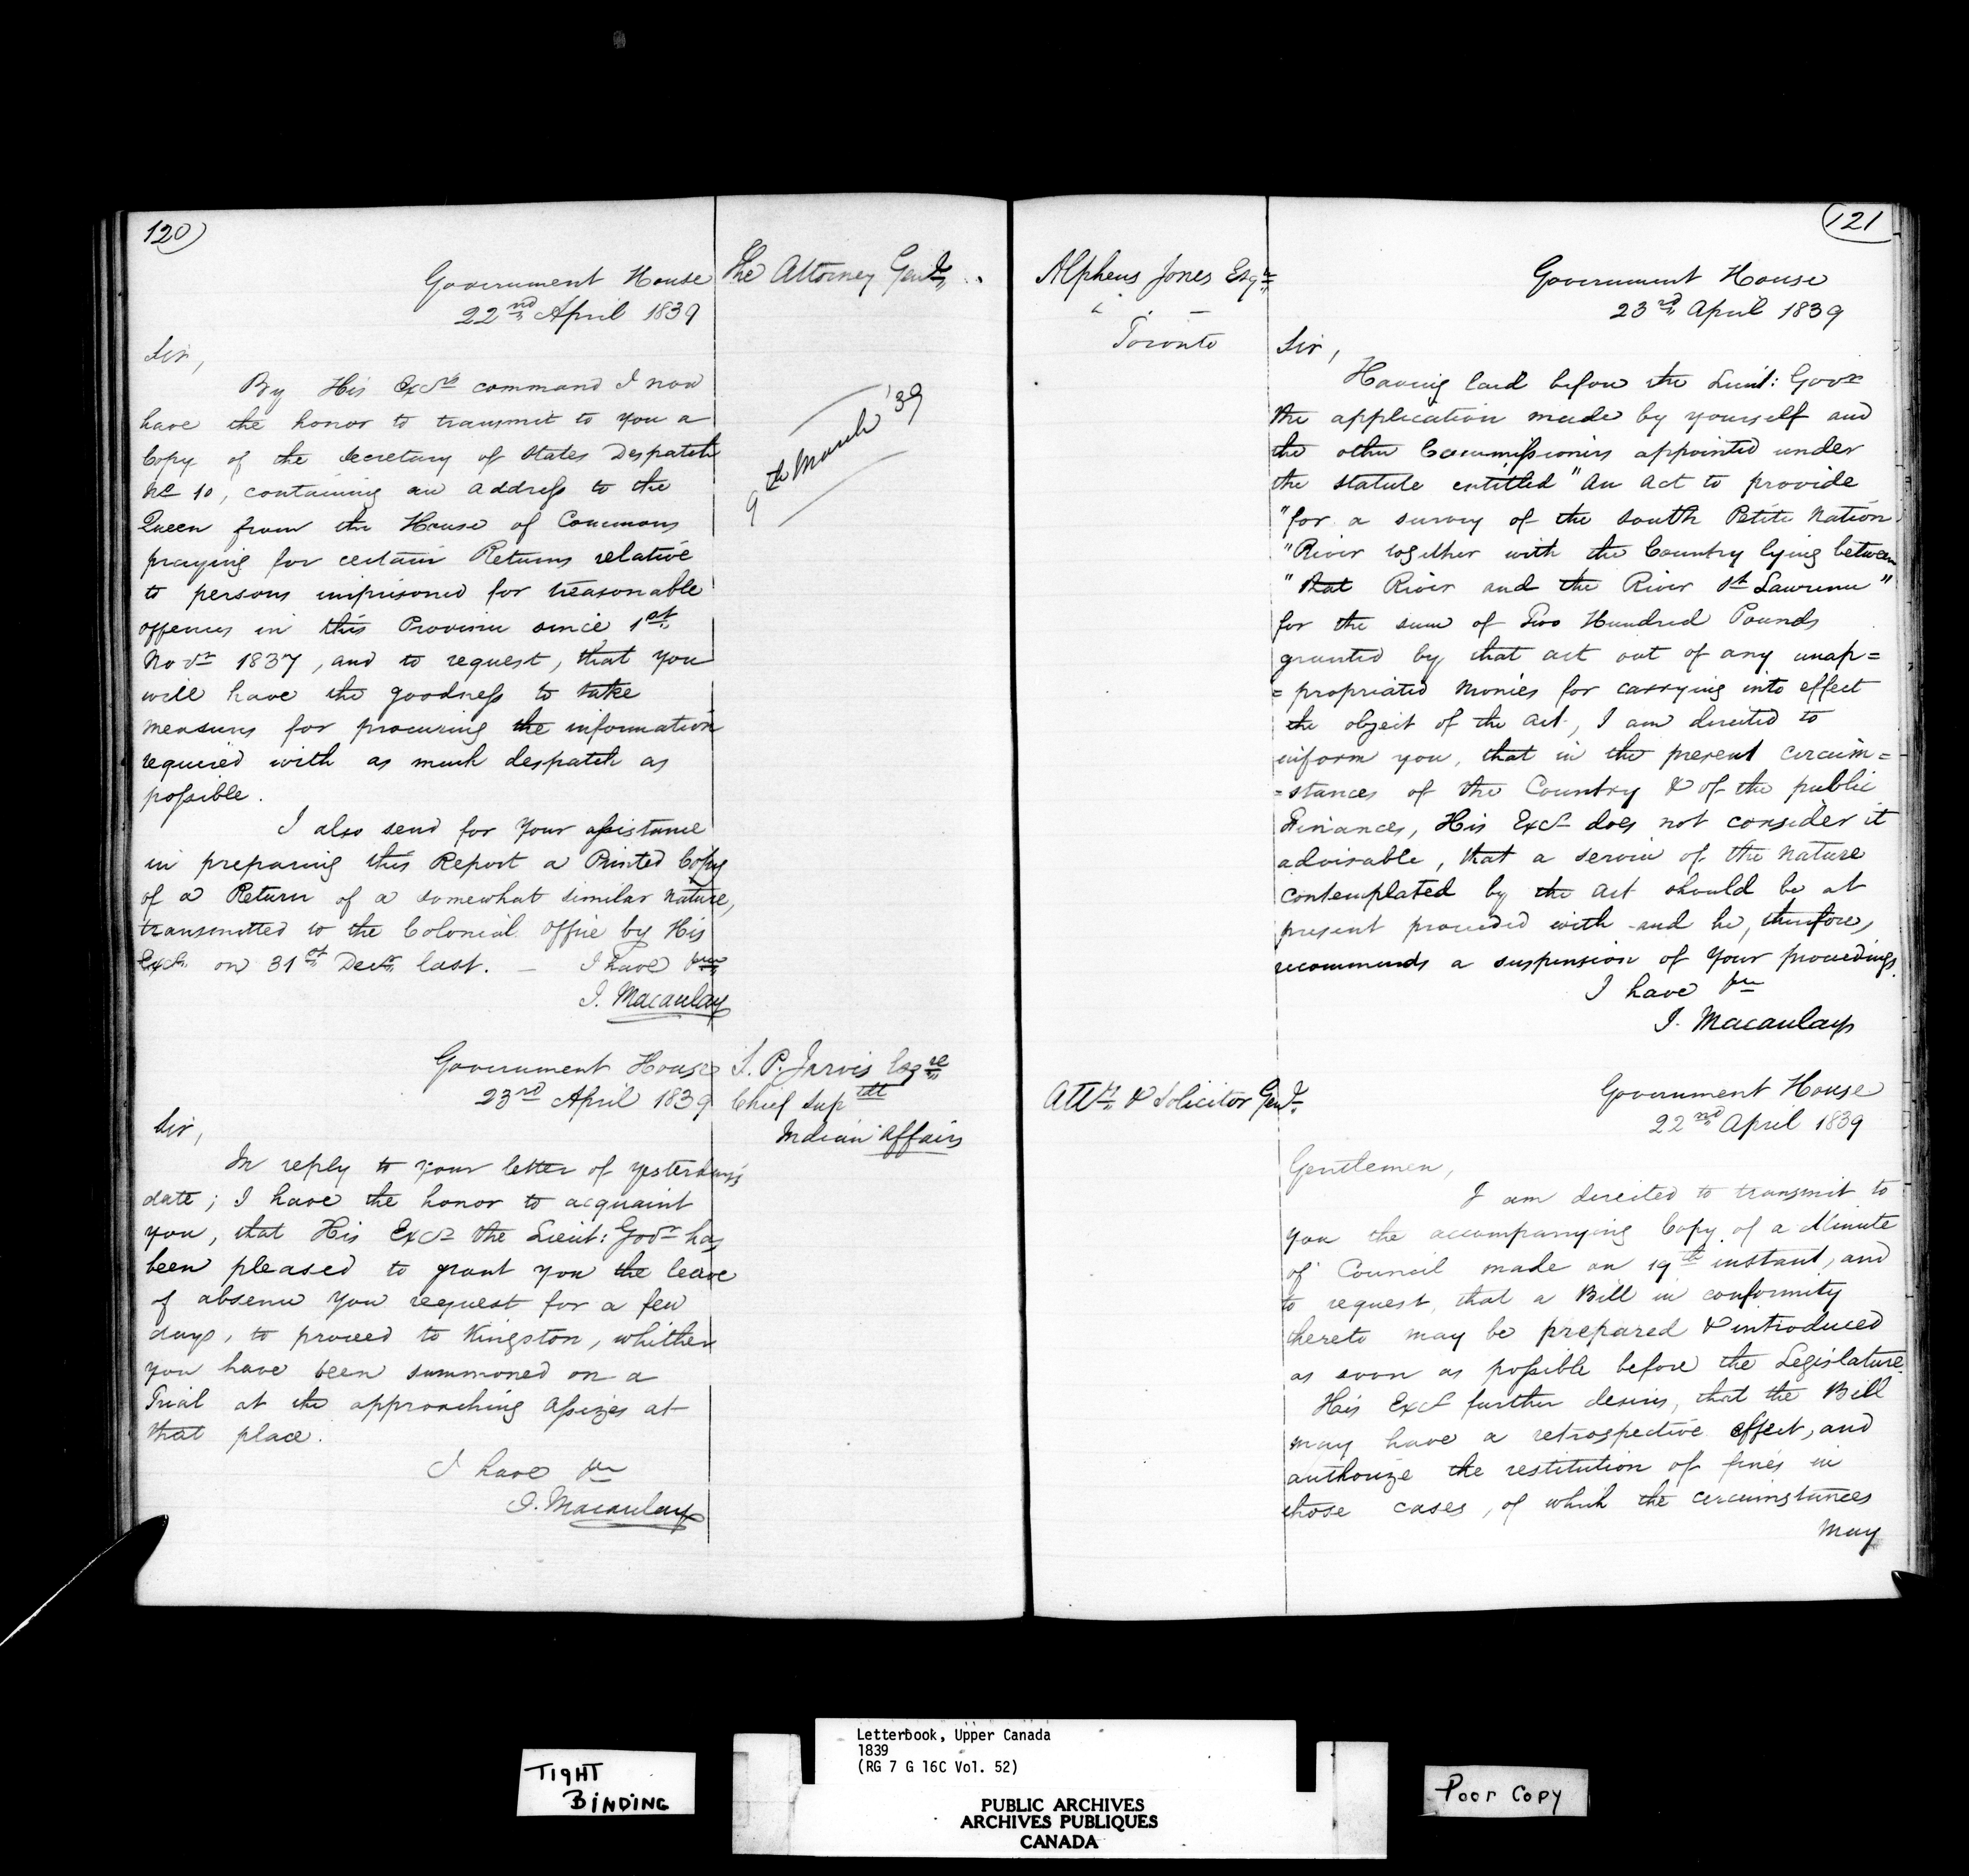 120
Government House
22nd April 1839
The Attorney Genl
Sir,
By His Excys command I now
have the honor to transmit to you a
Copy of the Secretary of States Despatch
No 10, containing an address to the
Queen from the House of Commons
praying for certain Returns relative
to persons imprisoned for treasonable
offences in this Province since 1st
Novr 1837, and to request, that you
will have the goodness to take
measures for procuring the information
required with as much despatch as
possible.
9th March '39
I also send for your assistance
in preparing this Report a Printed Copy
of a Return of a somewhat similar nature,
transmitted to the Colonial Office by His
Excy on 31st Decr last. — I have &c
J. Macaulay
Government House
23rd April 1839
S. P. Jarvis Esqre
Chief Suptdt
Indian Affairs
Sir,
In reply to your letter of yesterday's
date; I have the honor to acquaint
you, that His Excy the Lieut: Govr has
been pleased to grant you the leave
of absence you request for a few
days, to proceed to Kingston, whither
you have been summoned on a
Trial at the approaching Assizes at
that place.
I have &c
J. Macaulay
121
Alpheus Jones Esqr
Toronto
Government House
23rd April 1839
Sir,
Having laid before the Lieut: Govr
the application made by yourself and
the other Commissioners appointed under
the statute entitled "An Act to provide
"for a survey of the South Petite Nation
"River together with the Country lying between
"that River and the River St Lawrence"
for the sum of Two Hundred Pounds
granted by that act out of any unap=
=propriated Monies for carrying into effect
the object of the Act, I am directed to
inform you, that in the present circum=
=stances of the Country & of the public
Finances, His Excy does not consider it
advisable, that a service of the nature
contemplated by the Act should be at
present proceeded with and he, therefore,
recommends a suspension of your proceedings.
I have &c
J. Macaulay
Atty & Solicitor Genl
Government House
22nd April 1839
Gentlemen,
I am directed to transmit to
you the accompanying Copy of a Minute
of Council made on 19th instant, and
to request, that a Bill in conformity
thereto may be prepared & introduced
as soon as possible before the Legislature.
His Excy further desires, that the Bill
may have a retrospective effect, and
authorize the restitution of fines in
those cases, of which the circumstances
may
TIGHT
BINDING
Letterbook, Upper Canada
1839
(RG 7 G 16C Vol. 52)
PUBLIC ARCHIVES
ARCHIVES PUBLIQUES
CANADA
Poor Copy